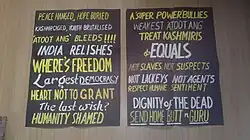 PEACE HANGED, HOPE BURIED
KASHMIRIYAT, YOUTH BRUTALISED
ATOOT ANG BLEEDS!!!!
INDIA RELISHES
WHERE'S FREEDOM
Largest DEMOCRACY
HEART NOT TO GRANT
The last wish?
HUMANITY SHAMED
A SUPER POWER BULLIES
WEAKEST ATOOT ANG
TREAT KASHMIRIS
as EQUALS
NOT SLAVES NOT SUSPECTS
NOT LACKEYS NOT AGENTS
RESPECT HUMANE SENTIMENT
DIGNITY OF THE DEAD
SEND HOME BUTT n GURU